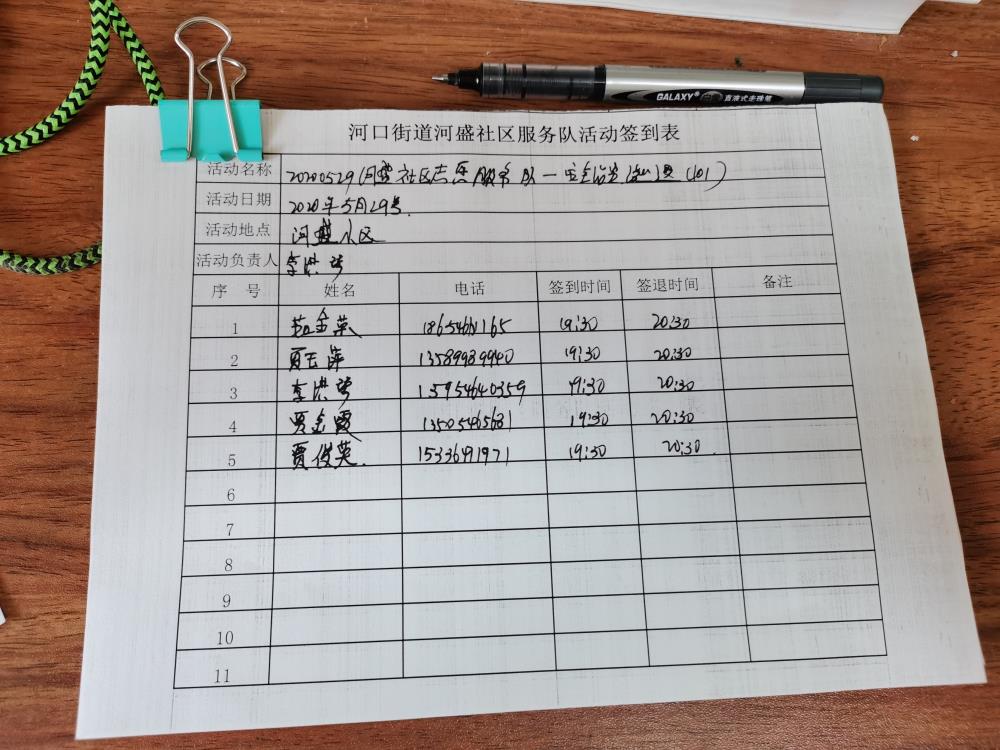 GALAXY® 直液式走珠笔
河口街道河盛社区服务队活动签到表
活动名称 20200529河盛社区志愿服务队一安全治安 (101)
活动日期 2020年5月29号.
活动地点 河盛小区
活动负责人 李洪
序 号 姓名 电话 签到时间 签退时间 备注
1 金英 19:30 20:30
2 贾云萍 13589989940 19:30 20:30
3 李洪 13954640359 19:30 20:30
4 贾金霞 13505465681 19:30 20:30
5 贾俊英. 15336491971 19:30 20:30
6
7
8
9
10
11